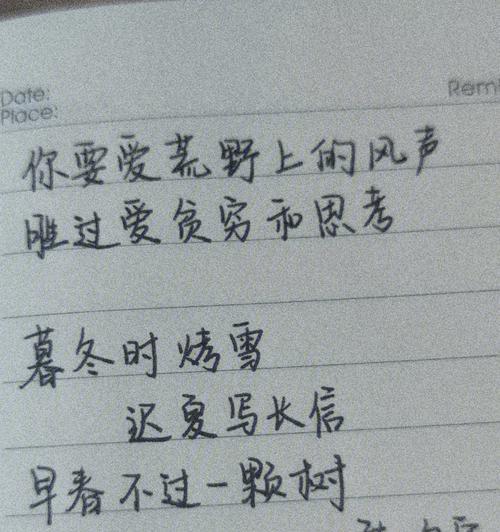 Date:
Place:
你要爱荒野上的风声
胜过爱贫穷和思考
暮冬时烤雪
迟夏写长信
早春不过一颗树